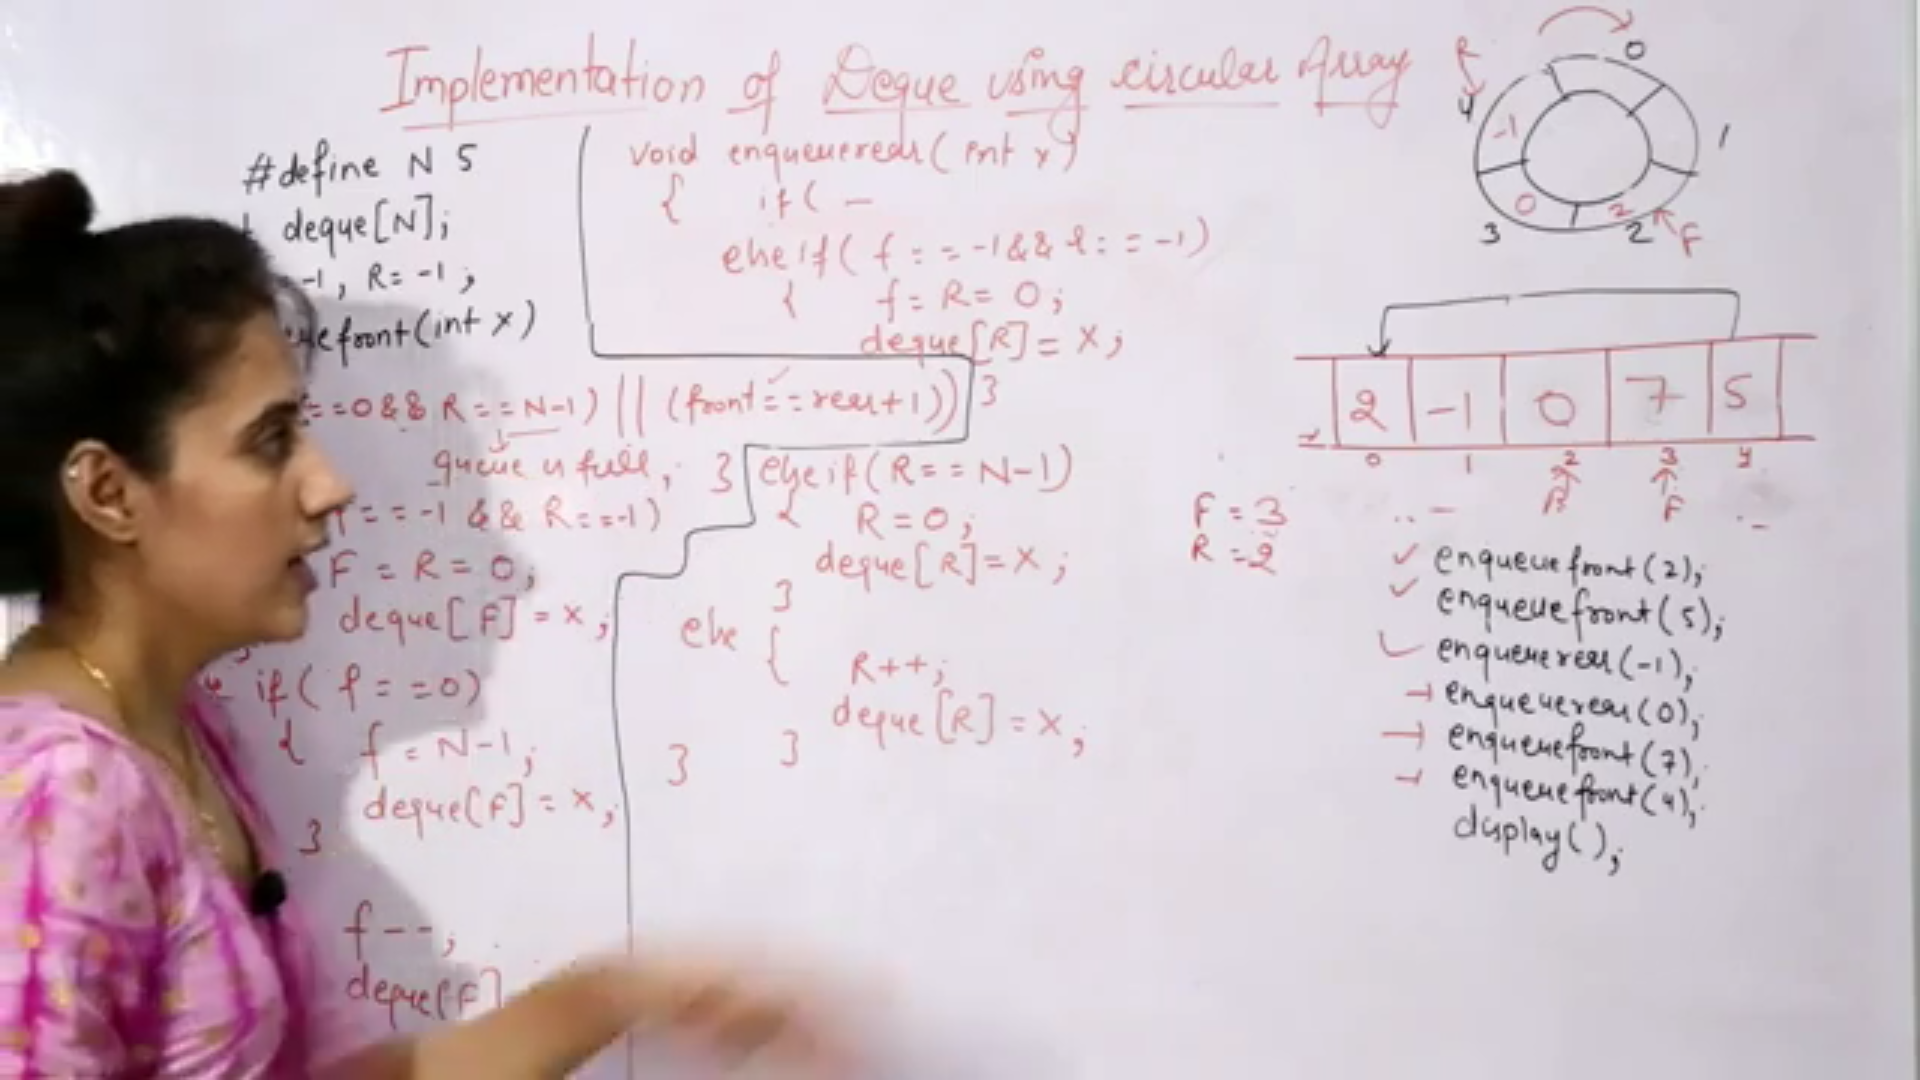 Implementation of Deque using circular Array
#define N 5
deque[N];
-1, R= -1;
front(int x)
==0 && R==N-1) || (front==rear+1))
queue is full; }
== -1 && R==-1)
F = R = 0;
deque[F] = x;
if( f = =0)
{ f = N-1;
deque[F] = x;
}
f--;
deque[F]
void enqueuerear( int x)
{ if( -
else if( f = = -1 && R = = -1)
{ f = R = 0;
deque[R] = x;
}
else if(R= = N-1)
{ R = 0;
deque[R] = x;
}
else {
R++;
deque[R] = x;
}
}
R
0
4
-1
1
0
2
3
2
F
2 -1 0 7 5
0 1 2 3 4
R F
F = 3
R = 2
enqueuefront(2);
enqueuefront(5);
enqueuerear(-1);
enqueuerear(0);
enqueuefront(7);
enqueuefront(4);
display();